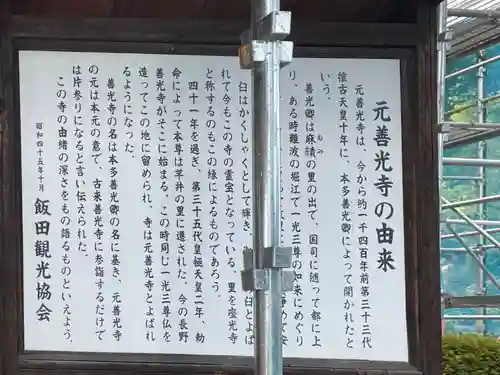 元善光寺の由来
元善光寺は、今から一千四百年前第三十三代
推古天皇十年に、本多善光卿によって開かれたと
いう。
善光卿は麻績の里の出で、国司に随って都に上
り、ある時難波の堀江で一光三尊の如来にめぐり
臼はかくしゃくとして輝き、
臼とよば
れて今もこの寺の霊宝となっている。里を座光寺
と称するのもこの縁によるものであろう。
四十一年を過ぎ、第三十五代皇極天皇二年、勅
命によって本尊は芋井の里に遷された。今の長野
善光寺がそこに始まる。この時同じ一光三尊仏を
造ってこの地に留められ、寺は元善光寺とよばれ
るようになった。
善光寺の名は本多善光卿の名に基き、元善光寺
の元は本元の意で、古来善光寺に参詣するだけで
は片参りになると言い伝えられた。
この寺の由緒の深さをもの語るものといえよう。
昭和四十五年十月
飯田観光協会